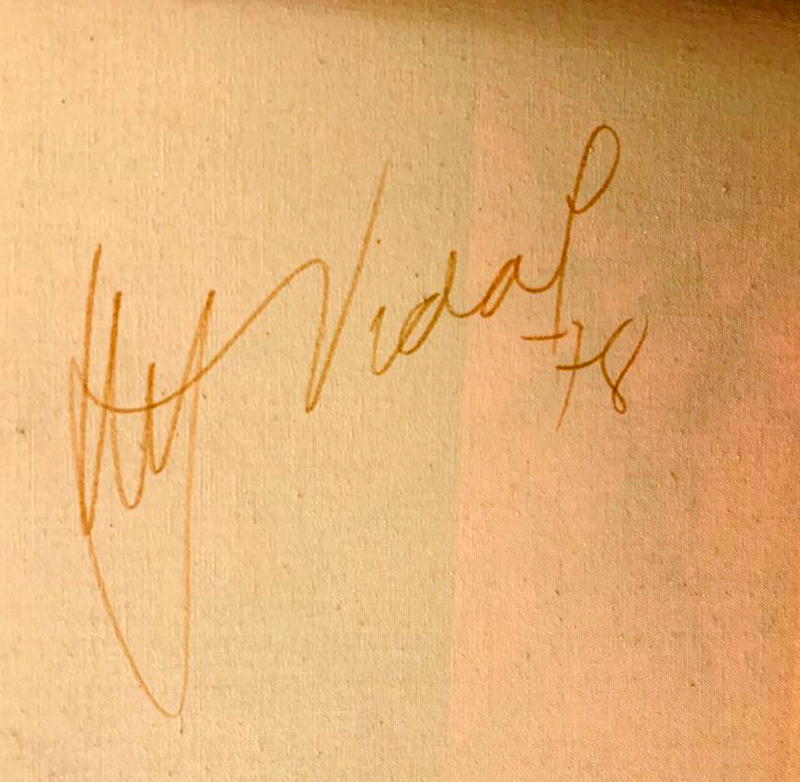 Hy Vidal
-78